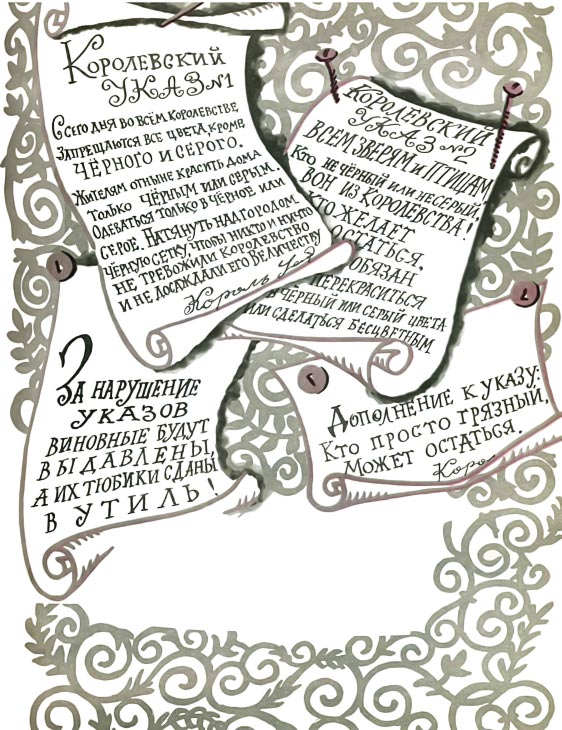 Королевский
УКАЗ №1
С сего дня во всём королевстве
Запрещаются все цвета, кроме
чёрного и серого.
Жителям отныне красить дома
только чёрным или серым.
Одеваться только в чёрное или
серое. Натянуть над городом
чёрную сетку, чтобы никто и ничто
не тревожили королевство
и не досаждали его величеству
Король
Королевский
УКАЗ №2
Всем зверям и птицам
Кто не чёрный или несерый,
вон из королевства!
Кто желает
остаться,
обязан
перекраситься
в чёрный или серый цвета
или сделаться бесцветным
За нарушение
указов
виновные будут
выдавлены,
а их тюбики сданы
в утиль!
Дополнение к указу:
Кто просто грязный,
может остаться.
Коро